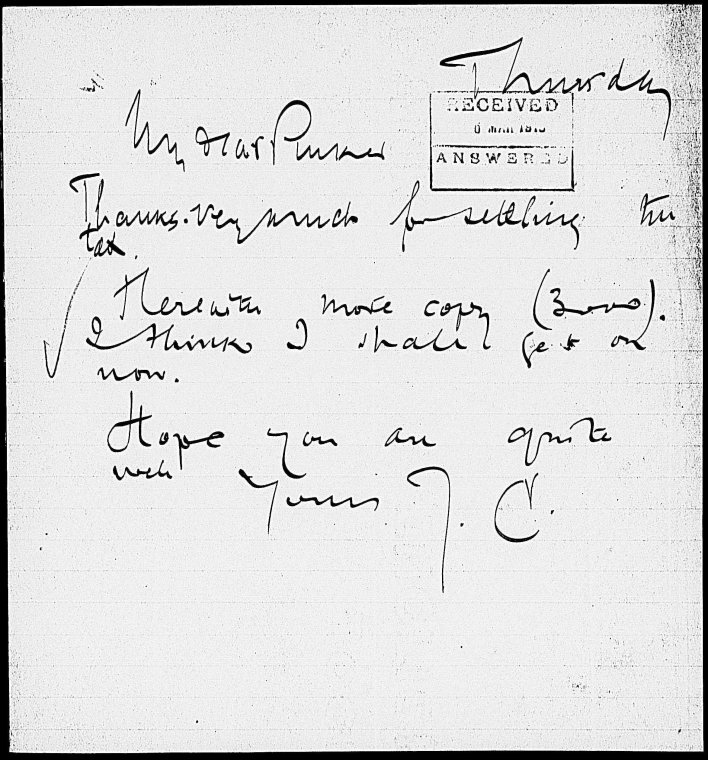 Thursday
RECEIVED
6 MAR 1913
ANSWERED
My dear Pinker
Thanks very much for settling the
tax.
Herewith more copy (3000).
I think I shall get on
now.
Hope you are quite
well
Yours J. C.